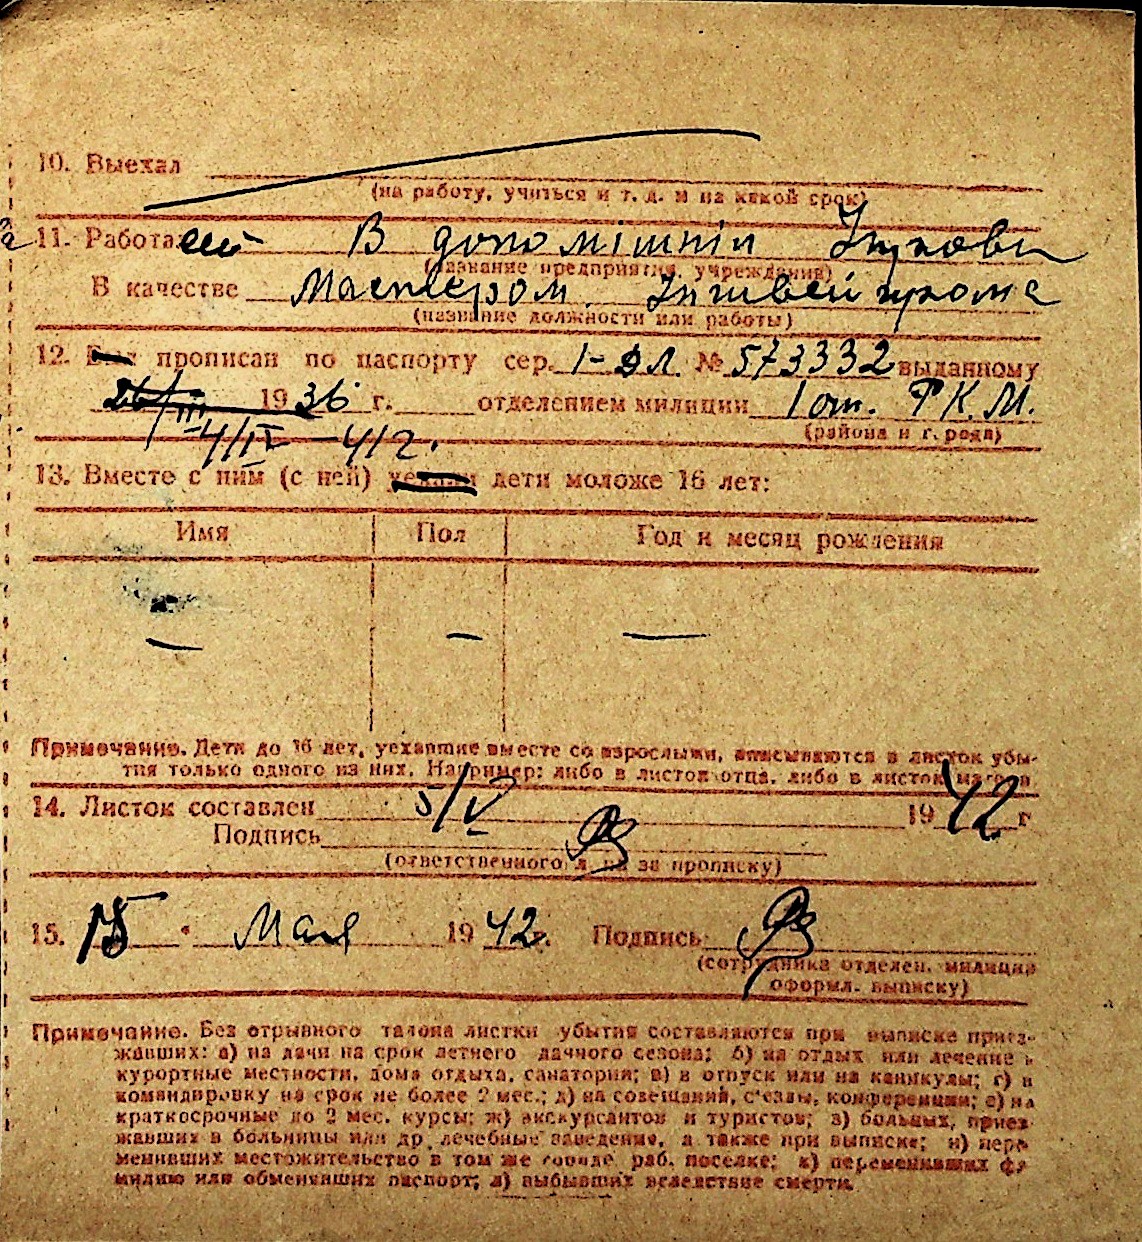 10. Выехал
(на работу, учиться и т. д. и на какой срок)
11. Работа
(название предприятия, учреждения)
В качестве Мастером
(название должности или работы)
12. прописан по паспорту сер. № 573332 выданному
26/III 1936 г. отделением милиции 1 от. Р.К.М.
(района и города)
4/IV - 42.
13. Вместе с ним (с ней) уехали дети моложе 16 лет:
Имя Пол Год и месяц рождения
— — —
Примечание. Дети до 16 лет, уехавшие вместе со взрослыми, вписываются в листок убы-
тия только одного из них. Например: либо в листок отца, либо в листок матери
14. Листок составлен 5/V 1942 г
Подпись
(ответственного л. за прописку)
15. Мая 1942. Подпись
(сотрудника отделен. милиции
оформл. выписку)
Примечание. Без отрывного талона листки убытия составляются при выписке приез-
жавших: а) на дачи на срок летнего дачного сезона; б) на отдых или лечение в
курортные местности, дома отдыха, санатории; в) в отпуск или на каникулы; г) в
командировку на срок не более 2 мес.; д) на совещания, с'езды, конференции; е) на
краткосрочные до 2 мес. курсы; ж) экскурсантов и туристов; з) больных, приез-
жавших в больницы или др. лечебные заведения, а также при выписке; и) пере-
менивших местожительство в том же городе, раб. поселке; к) переменивших фа-
милию или обменявших паспорт; л) выбывших вследствие смерти.